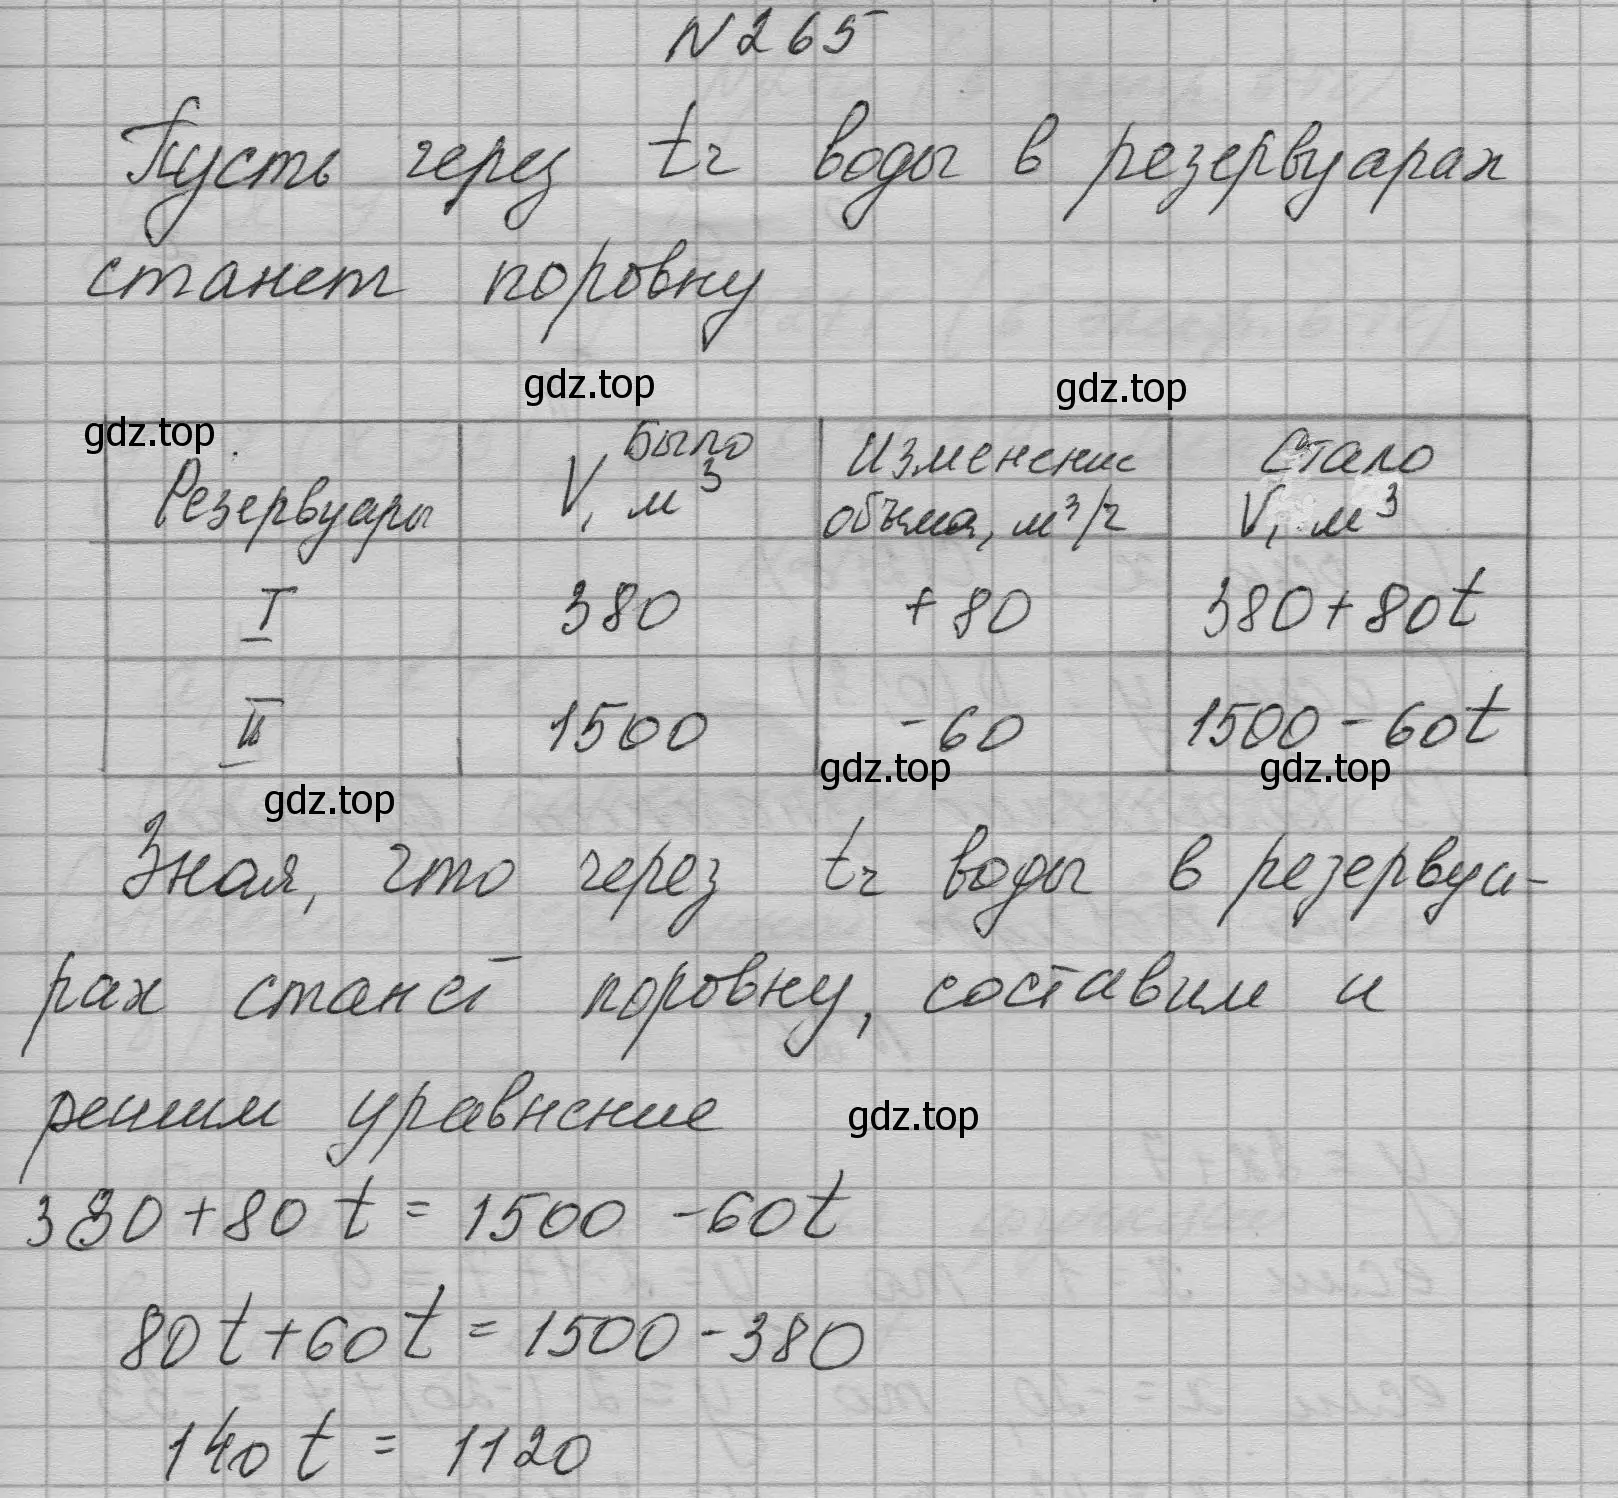 N 265
Пусть через t ч воды в резервуарах
станет поровну
gdz.top gdz.top
gdz.top
Резервуары | Было V, м³ | Изменение объёма, м³/ч | Стало V, м³
I | 380 | +80 | 380+80t
II | 1500 | -60 | 1500-60t
gdz.top gdz.top
gdz.top
Зная, что через t ч воды в резервуа-
рах станет поровну, составим и
решим уравнение
gdz.top
380+80t = 1500-60t
80t+60t = 1500-380
140t = 1120